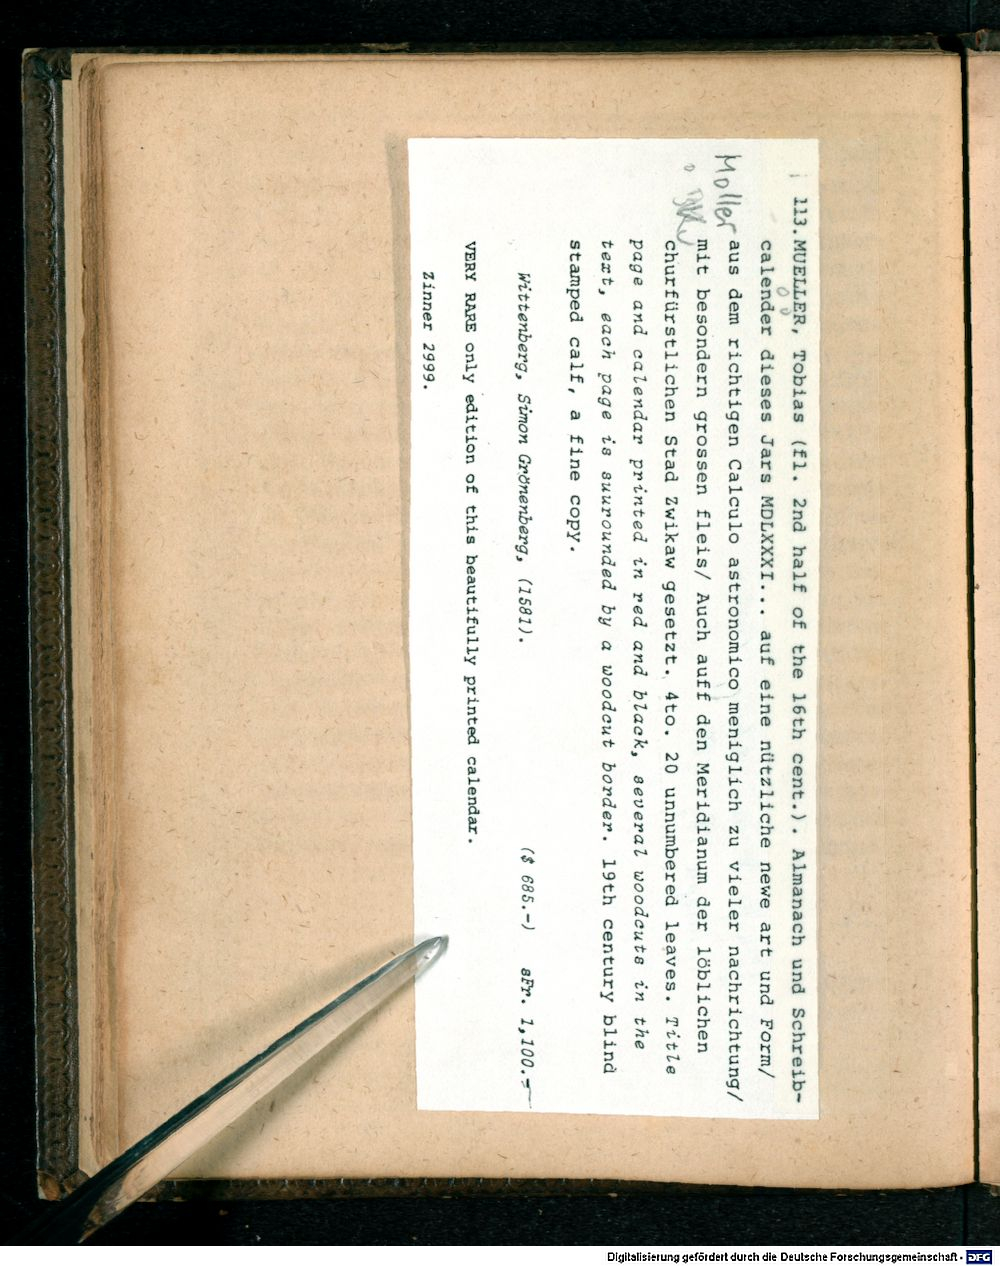 113. MUELLER, Tobias (fl. 2nd half of the 16th cent.). Almanach und Schreib-
calender dieses Jars MDLXXXI... auf eine nützliche newe art und Form/
Moller
aus dem richtigen Calculo astronomico meniglich zu vieler nachrichtung/
mit besondern grossen fleis/ Auch auff den Meridianum der löblichen
churfürstlichen Stad Zwikaw gesetzt. 4to. 20 unnumbered leaves. Title
page and calendar printed in red and black, several woodcuts in the
text, each page is suurounded by a woodcut border. 19th century blind
stamped calf, a fine copy.
Wittenberg, Simon Grönenberg, (1581). ($ 685.-) sFr. 1,100.-
VERY RARE only edition of this beautifully printed calendar.
Zinner 2999.
Digitalisierung gefördert durch die Deutsche Forschungsgemeinschaft - DFG